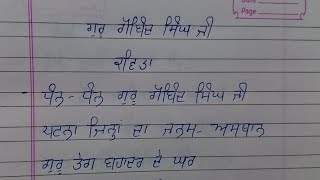 Date
Page
ਗੁਰੂ ਗੋਬਿੰਦ ਸਿੰਘ ਜੀ
ਕਵਿਤਾ
ਧੰਨ-ਧੰਨ ਗੁਰੂ ਗੋਬਿੰਦ ਸਿੰਘ ਜੀ
ਪਟਨਾ ਜਿਨ੍ਹਾਂ ਦਾ ਜਨਮ-ਅਸਥਾਨ
ਗੁਰੂ ਤੇਗ ਬਹਾਦਰ ਦੇ ਘਰ